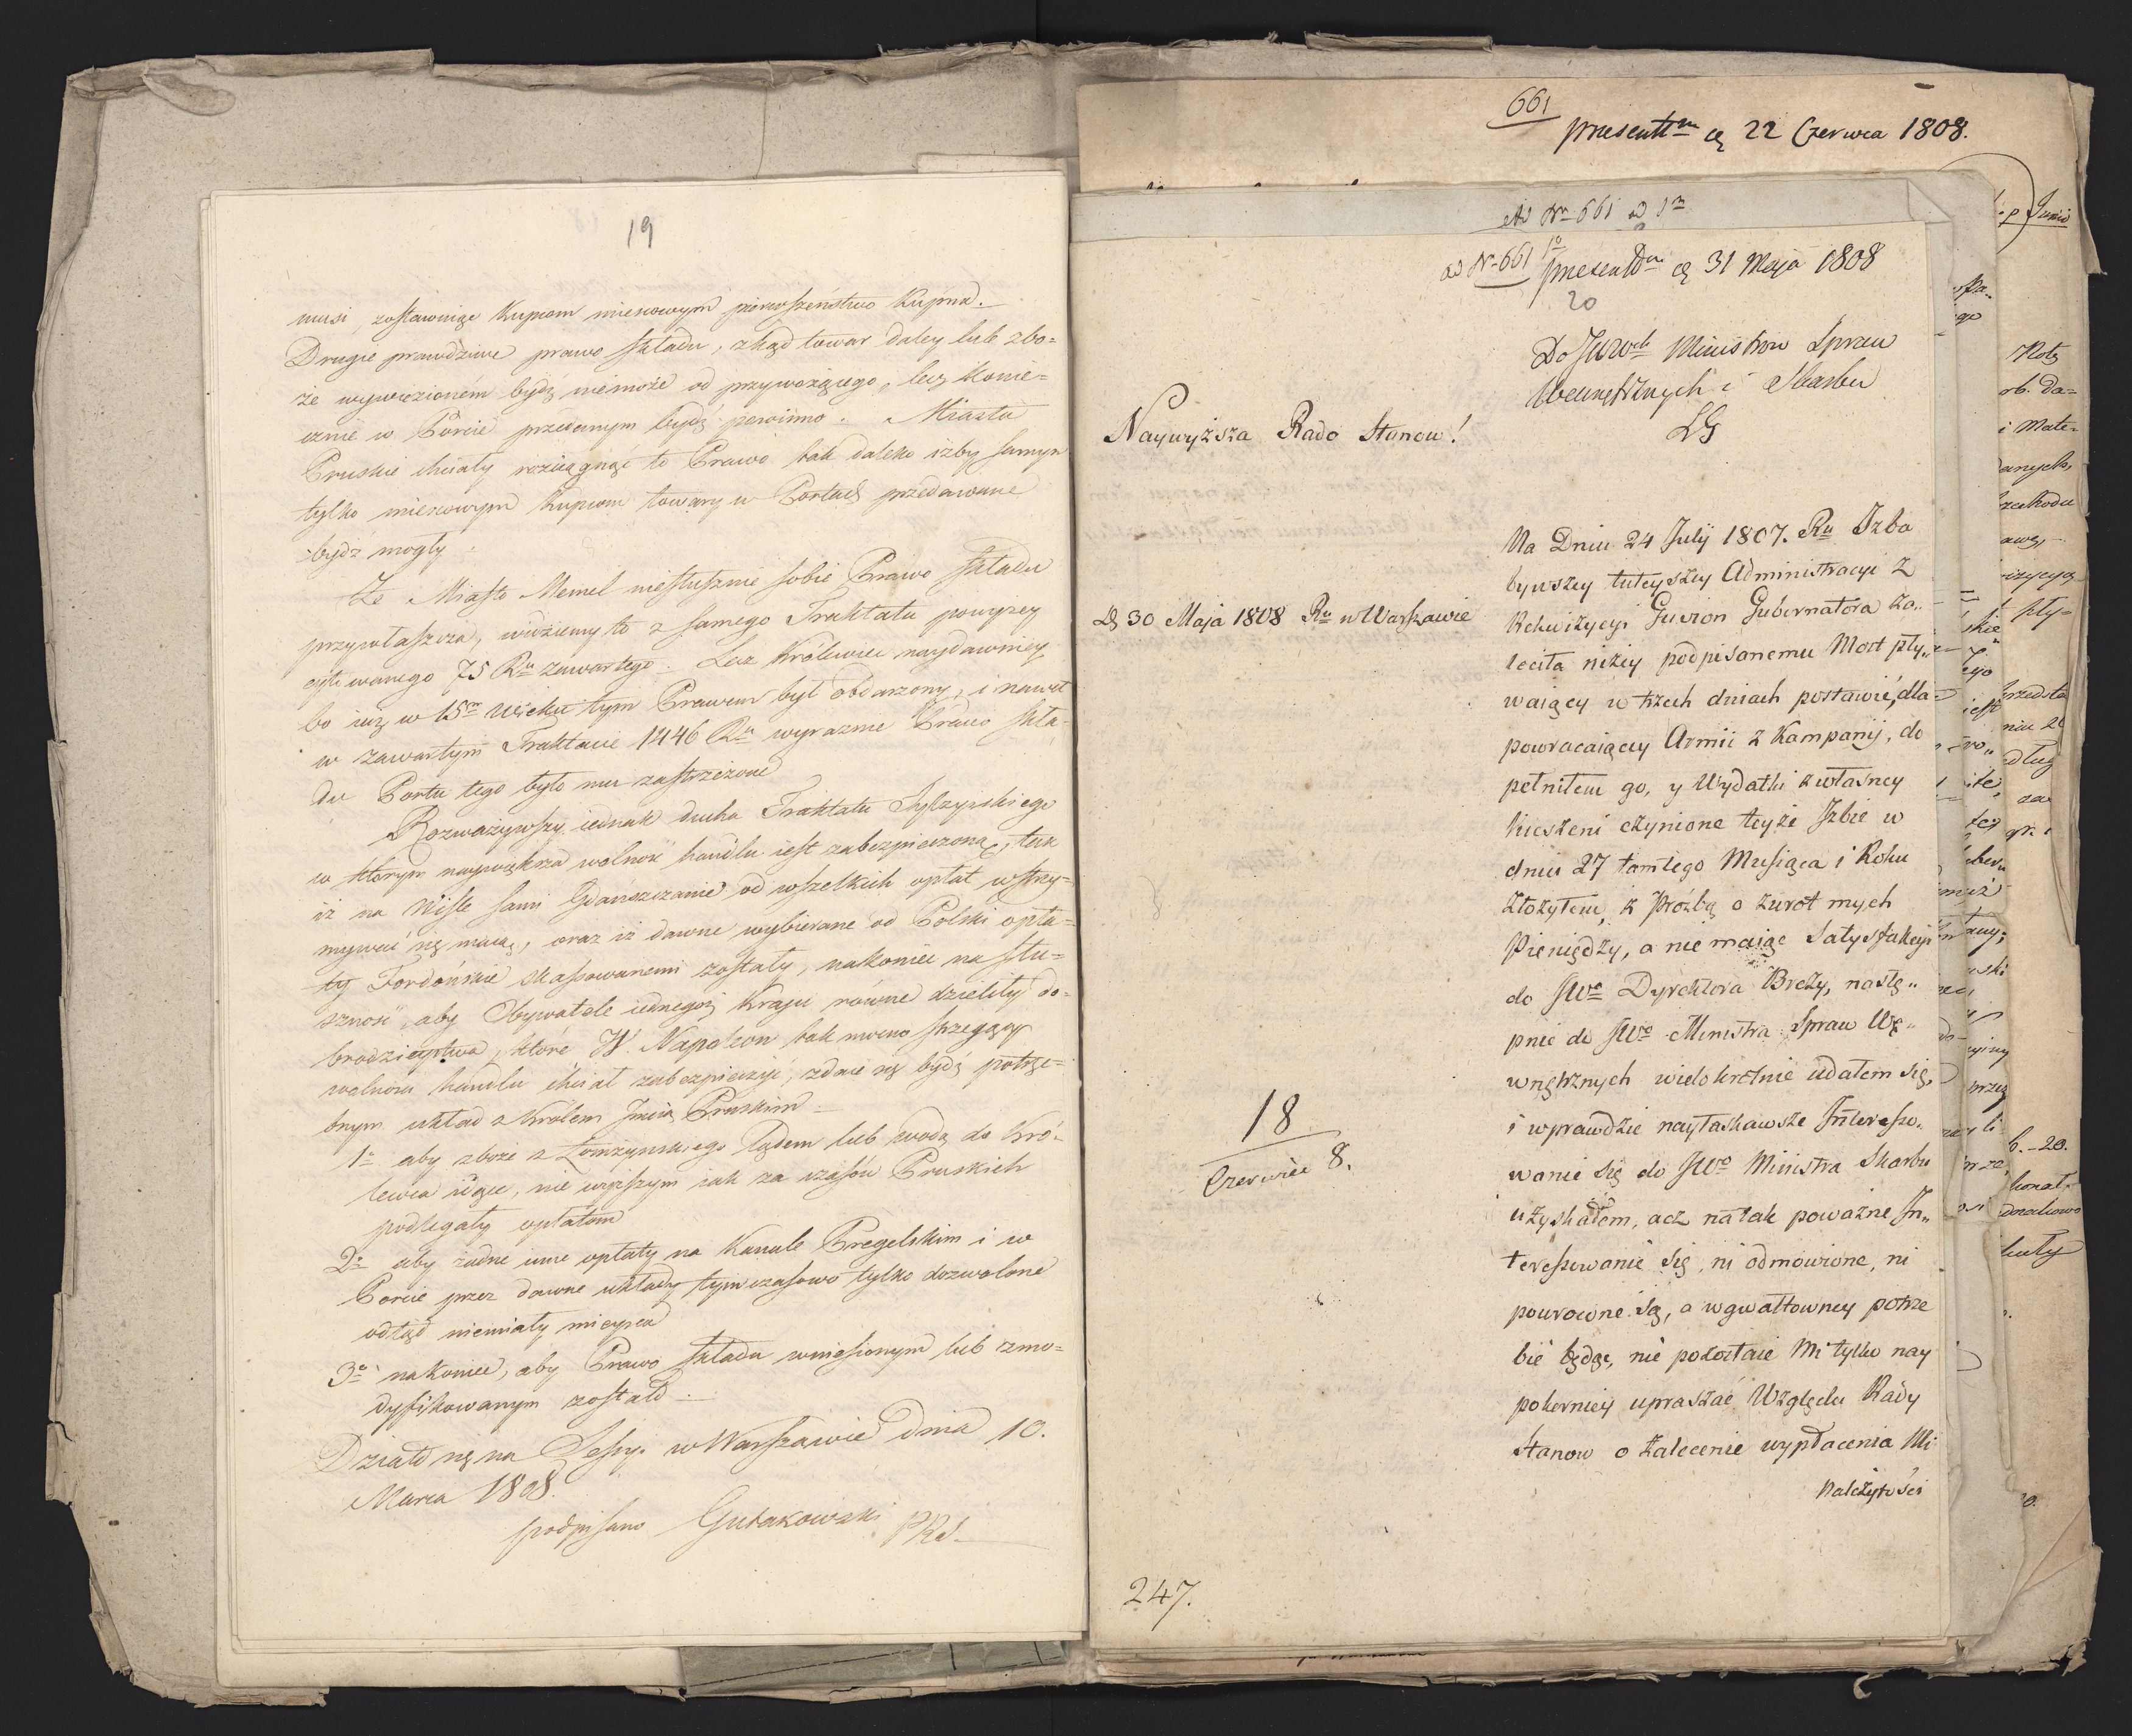 19
musi, zostawuiąc Kupcom mieyscowym pierwszeństwo Kupna.
Drugie prawdziwe prawo składu, zkąd towar daley lub zbo=
że wywiezionem bydź niemoże od przywożącego, lecz konie=
cznie w Porcie przedanym bydź powinno. Miasta
Pruskie chciały rozciągnąć to Prawo tak daleko izby samym
tylko mieyscowym Kupcom towary w Portach przedawane
bydź mogły.
Że Miasto Memel niesłusznie sobie Prawo składu
przywłaszcza, widziemy to z samego Traktatu powyżey
cytowanego 75 Ru zawartego. Lecz Królewiec naydawniey
bo iuż w 15m wieku tym Prawem był obdarzony, i nawet
w zawartym Traktacie 1446 Ru wyraźnie Prawo skła=
du Portu tego było mu zastrzeżone
Rozważywszy iednak ducha Traktatu Tylżyńskiego
w którym naywiększa wolność handlu iest zabezpieczoną, tak
iż na Wiśle sami Gdańszczanie od wszelkich opłat wstrzy=
mywać się maią, oraz iż dawne wybierane od Polski opła=
ty Fordońskie skassowanemi zostały, nakoniec na słu=
szność, aby Obywatele iednegoż Kraiu równe dzielili do=
brodzieystwa, które W. Napoleon tak mocno strzegący
wolności handlu chciał zabezpieczyć, zdaie się bydź potrze=
bnym układ z Królem Jmcią Pruskim
1o aby zboże z Łomżyńskiego lądem lub wodą do Kró=
lewca idące, nie większym iak za czasów Pruskich
podlegały opłatom
2o aby żadne inne opłaty na Kanale Pregelskim i w
Porcie przez dawne układy tymczasowo tylko dozwolone
odtąd niemiały mieysca
3o nakoniec, aby Prawo składu zniesionym lub zmo=
dyfikowanym zostało.
Działo się na Sessyi w Warszawie dnia 10.
Marca 1808.
podpisano Gutakowski PRS.
661
presentm d 22 Czerwca 1808.
ad Nr 661
ad Nr 661 1o presentm d 31 Maja 1808
20
Do JWWch Ministrow Spraw
Wewnętrznych i Skarbu
LG
Naywyższa Rado Stanow!
D 30 Maja 1808 Ru w Warszawie
Na Dniu 24 July 1807. Ru Izba
bywszey tuteyszey Administracyi z
Rekwizycyi Guvion Gubernatora za„
leciła niżey podpisanemu Most pły„
waiący w trzech dniach postawić, dla
powracaiącey Armii z Kampanij, do
pełniłem go, y Wydatki z własney
kieszeni czynione teyże Izbie w
dniu 27 tamtego Miesiąca i Roku
złożyłem, z prożbą o zwrot mych
Pieniędzy, a nie maiąc Satysfakcyi
do JWo Dyrektora Brezy, nastę„
pnie do JWo Ministra Spraw We„
wnętrznych wielokrotnie udałem się,
i wprawdzie nayłaskawsze Interesso„
wanie się do JWo Ministra Skarbu
uzyskałem, acz na tak poważne In„
teressowanie się, ni odmowione, ni
powrocone są, a w gwałtowney potrze
bie będąc, nie pozostaie Mi tylko nay
pokorniey upraszać Względu Rady
Stanow o Zalecenie wypłacenia Mi
Należytości
18
Czerwiec 8.
247.